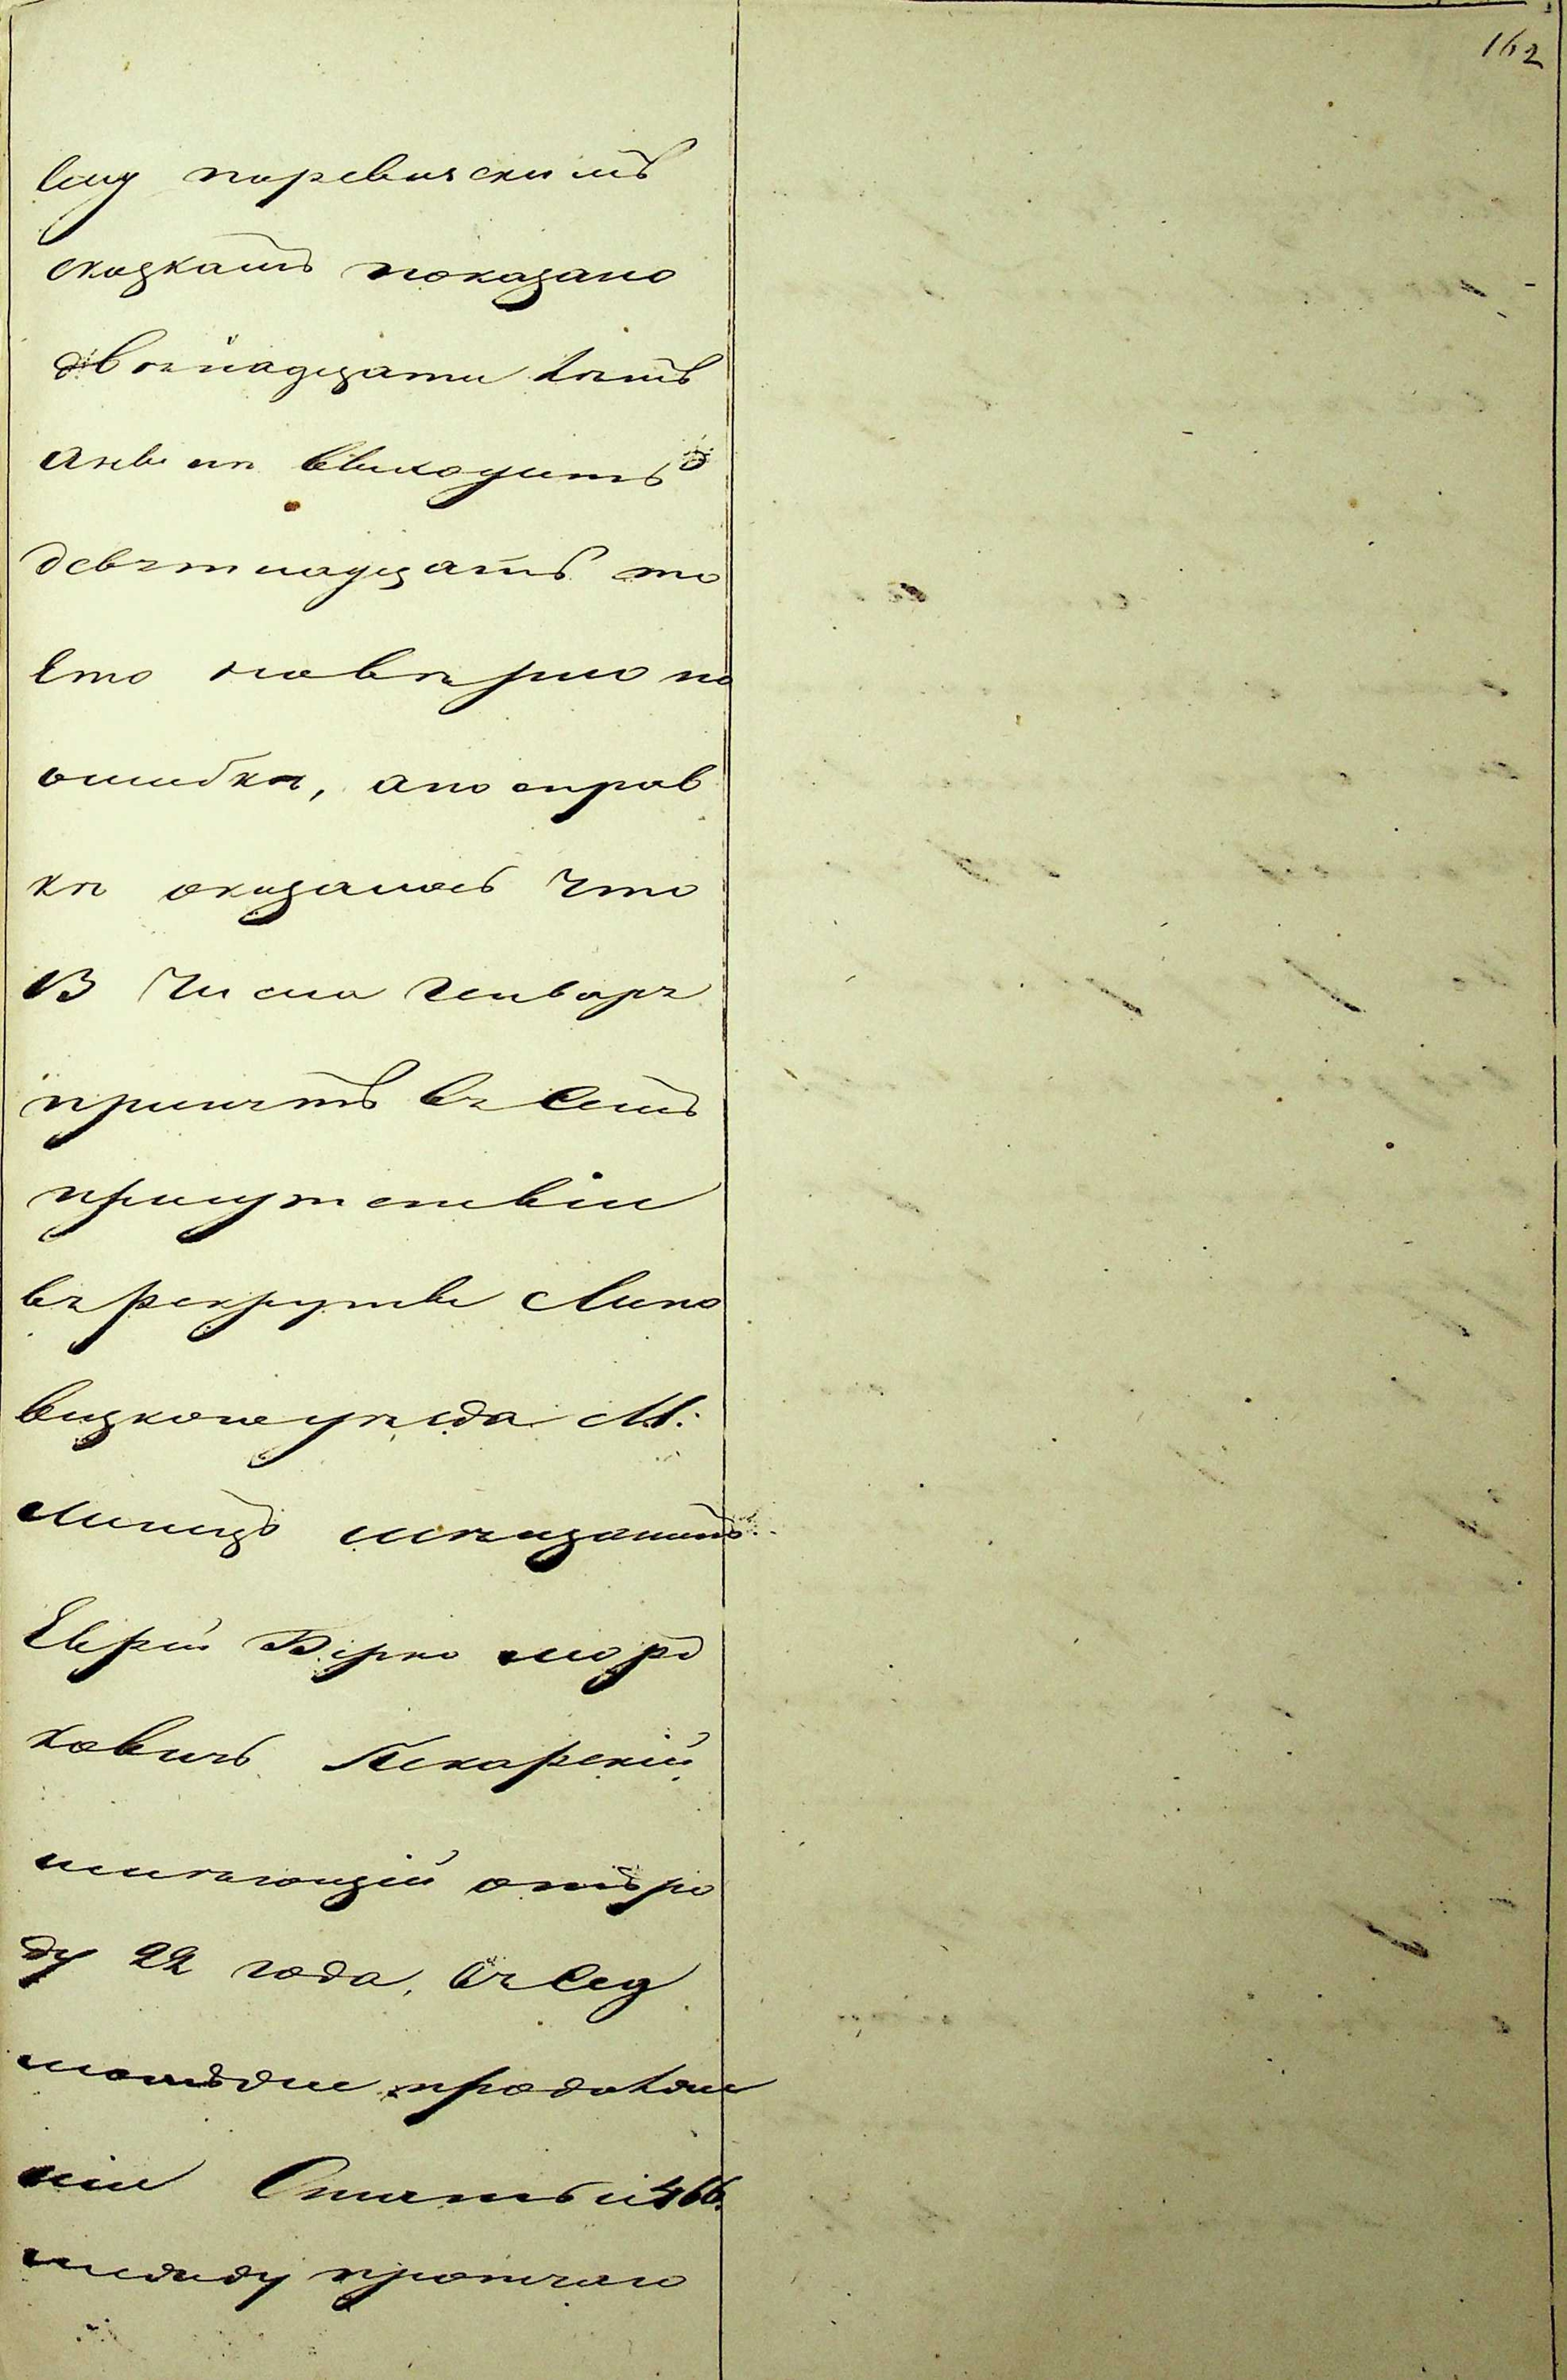 162
ему поревизскимъ
сказкамъ показано
двѣнадцати лѣтъ
анвѣкъ выходитъ
девятнадцать то
Ето навѣрно по
ошибкѣ, апосправ
кѣ оказалось что
13 Числа Генваря
принятъ въ Семъ
присутствіи
въ рекруты Липо
вецкогоуѣзда М:
Линецъ мѣщанинъ
Еврей Берко Морд
ковичъ Пекарскій
имѣющій отъро
ду 22 года, въ Сед
момъже продолже
ніи Статьи 466.
между протчаго